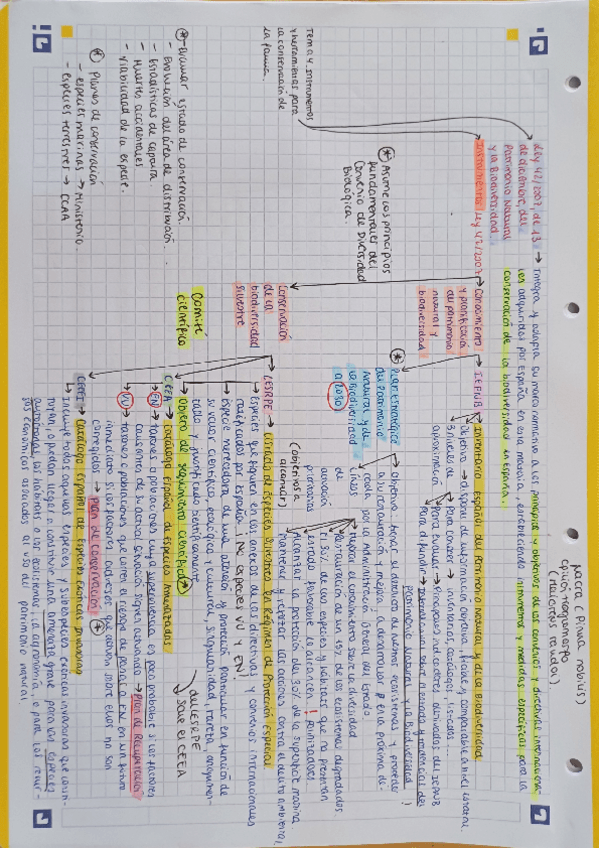 nacra (Pinna nobilis)
(Melanopsis
Ley 42/2007, de 13 → Integra y adapta su marco normativo a los principios y objetivos de los convenios y directivas internacio-
de diciembre, del los adquiridos por España en esa materia, estableciendo instrumentos y medidas específicas para la
Patrimonio Natural conservación de la biodiversidad en España.
y la Biodiversidad.
Tema 4. Instrumentos
y herramientas para
la conservación de
la fauna.
Instrumentos Ley 42/2007
* Asume los principios
fundamentales del
Convenio de Diversidad
Biológica.
Conocimiento
y planificación
del patrimonio
natural y
biodiversidad
→ IEPNB → Inventario Español del Patrimonio Natural y de la Biodiversidad
Objetivo → disponer de información objetiva, fiable y comparable a nivel general
3 niveles de
aproximación
Para conocer → inventarios, catálogos, listados...
Para evaluar → Principales indicadores derivados del IEPNB
Para difundir → Informe anual sobre el estado y tendencias del
patrimonio natural y la biodiversidad!
* Plan estratégico
del Patrimonio
Natural y de
la Biodiversidad
a 2030
→ Objetivo: frenar el deterioro de nuestros ecosistemas y proceder
a su restauración y mejora a desarrollar en la próxima dé-
cada por la Administración General del Estado
(objetivos a
alcanzar)
Mejorar el conocimiento sobre la diversidad
Restauración de un 15% de los ecosistemas degradados
El 30% de las especies y hábitats que no presentan
estado favorable lo alcancen! polinizadores
Alcanzar la protección del 30% de la superficie marina
Mantener y reforzar las acciones contra el delito ambiental
Conservación
de la
biodiversidad
silvestre
→ LESRPE → Listado de Especies Silvestres en Régimen de Protección Especial
Especies que figuren en los anexos de las directivas y convenios internacionales
ratificados por España. ¡No especies VU y EN!
Especie merecedora de una atención y protección particular en función de
su valor científico, ecológico y cultural, singularidad, rareza, argumen-
tado y justificado científicamente
→ Objeto de seguimiento científico *
del LESRPE
sale el CEEA
Comité
científico
CEEA → Catálogo Español de Especies Amenazadas
EN → Taxones o poblaciones cuya supervivencia es poco probable si los factores
causantes de su actual situación siguen actuando → Plan de Recuperación
VU → Taxones o poblaciones que corren el riesgo de pasar a EN en un futuro
inmediato si los factores adversos que actúan sobre ellos no son
corregidos → Plan de conservación *
CEEI → Catálogo Español de Especies Exóticas Invasoras
↳ Incluye todas aquellas especies y subespecies exóticas invasoras que consti-
tuyan, o puedan llegar a constituir una amenaza grave para las especies
autóctonas, los hábitats o los ecosistemas, la agronomía, o para los recur-
sos económicos asociados al uso del patrimonio natural
* Evaluar estado de conservación
- Evolución del área de distribución.
- Estadísticas de captura.
- Muerte accidentales
- Viabilidad de la especie.
* Planes de conservación
- especies marinas → Ministerio.
- especies terrestres → CCAA